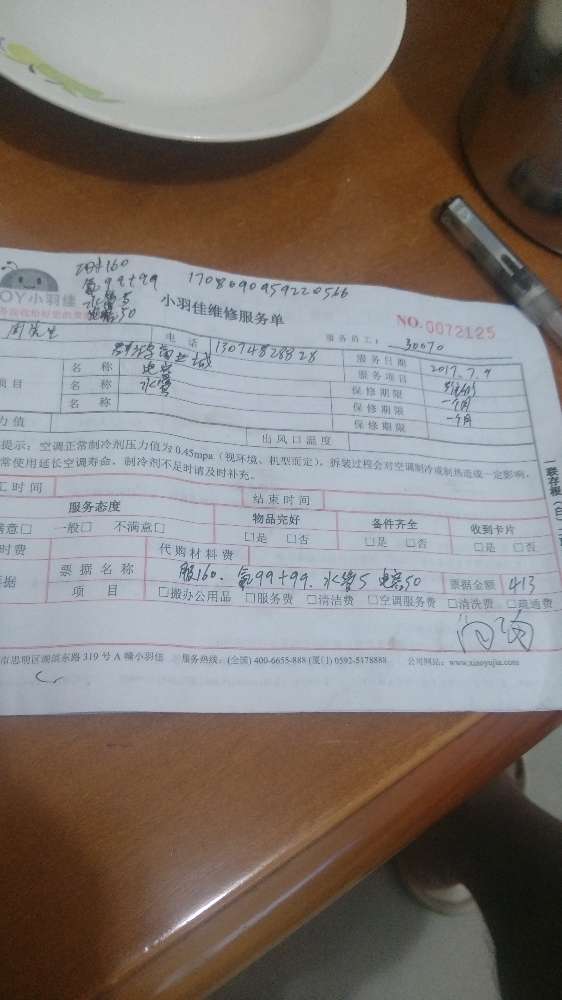 160
氟99+99
OY小羽佳
水管5
电容50
1708090959220566
小羽佳维修服务单
NO.0072125
周先生
电 话 13074828828
服务员工: 30070
服务日期 2017.7.9
名 称 电容
服务项目
项目 名 称 水管
保修期限 一个月
名 称
保修期限 一个月
保修期限
力值
出风口温度
提示:空调正常制冷剂压力值为0.45mpa(视环境、机型而定),拆装过程会对空调制冷或制热造成一定影响,
常使用延长空调寿命,制冷剂不足时请及时补充。
工时间
结束时间
服务态度 物品完好 备件齐全 收到卡片
满意□ 一般□ 不满意□ □是 □否 □是 □否 □是 □否
时费 代购材料费
据 票据名称 服160、氟99+99、水管5 电容50 票据金额 413
项 目 □搬办公用品 □服务费 □清洁费 □空调服务费 □清洗费 □疏通费
市思明区湖滨东路 319 号 A 幢小羽佳 服务热线:(全国) 400-6655-888 (厦门) 0592-5178888 公司网站:www.xiaoyujia.com